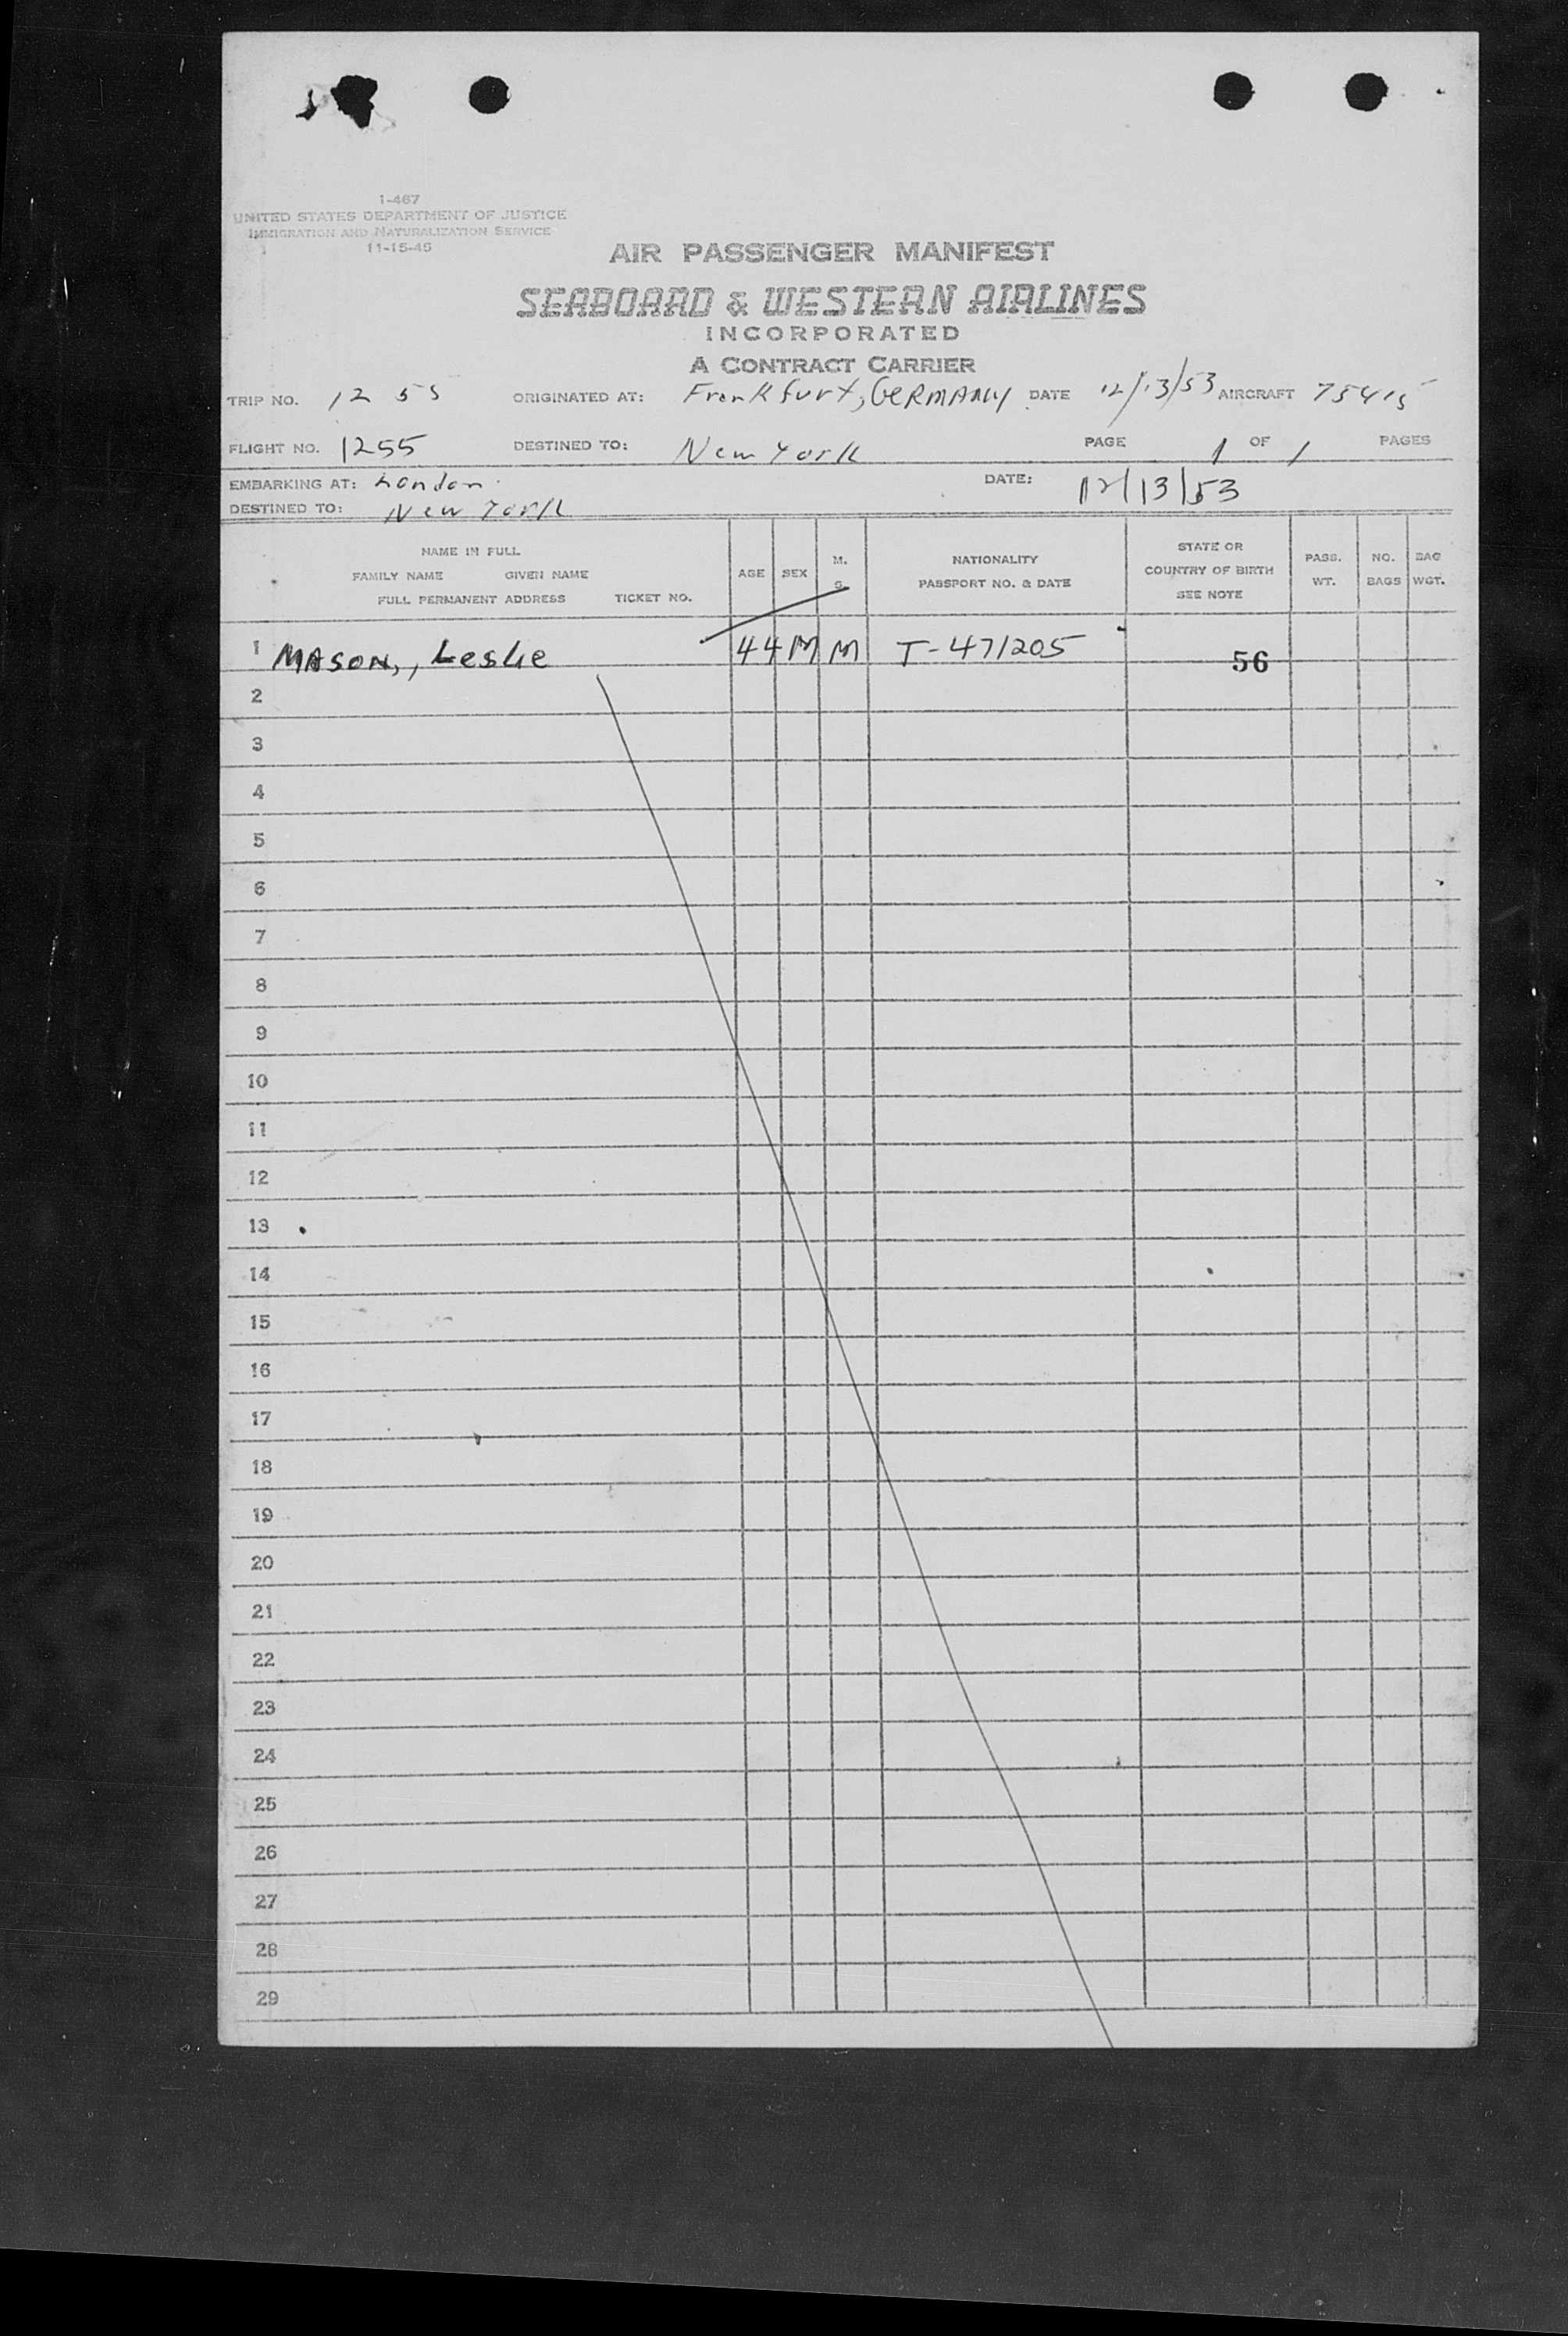 1-467
UNITED STATES DEPARTMENT OF JUSTICE
IMMIGRATION AND NATURALIZATION SERVICE
11-15-45
AIR PASSENGER MANIFEST
SEABOARD & WESTERN AIRLINES
INCORPORATED
A CONTRACT CARRIER
TRIP NO. 1255 ORIGINATED AT: Frankfurt, GERMANY DATE 12/13/53 AIRCRAFT 75415
FLIGHT NO. 1255 DESTINED TO: New York PAGE 1 OF 1 PAGES
EMBARKING AT: London DATE: 12/13/53
DESTINED TO: New York
NAME IN FULL
FAMILY NAME GIVEN NAME
FULL PERMANENT ADDRESS TICKET NO.
AGE SEX M. S.
NATIONALITY
PASSPORT NO. & DATE
STATE OR
COUNTRY OF BIRTH
SEE NOTE
PASS. WT.
NO. BAGS
BAG WGT.
1 MASON,, Leslie 44 M M T-471205 56
2
3
4
5
6
7
8
9
10
11
12
13
14
15
16
17
18
19
20
21
22
23
24
25
26
27
28
29